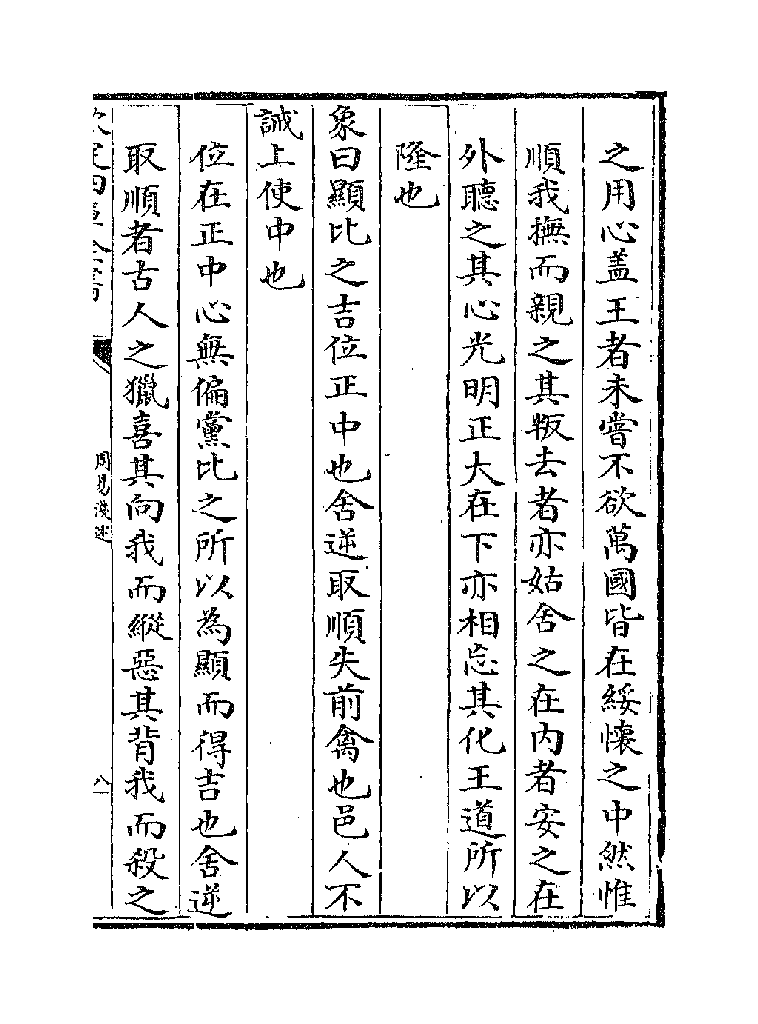 之用心蓋王者未嘗不欲萬國皆在綏懷之中然惟
順我撫而親之其叛去者亦姑舍之在内者安之在
外聽之其心光明正大在下亦相忘其化王道所以
隆也
象曰顯比之吉位正中也舍逆取順失前禽也邑人不
誡上使中也
位在正中心無偏黨比之所以為顯而得吉也舍逆
取順者古人之獵喜其向我而縱惡其背我而殺之
欽定四庫全書
周易淺述
八